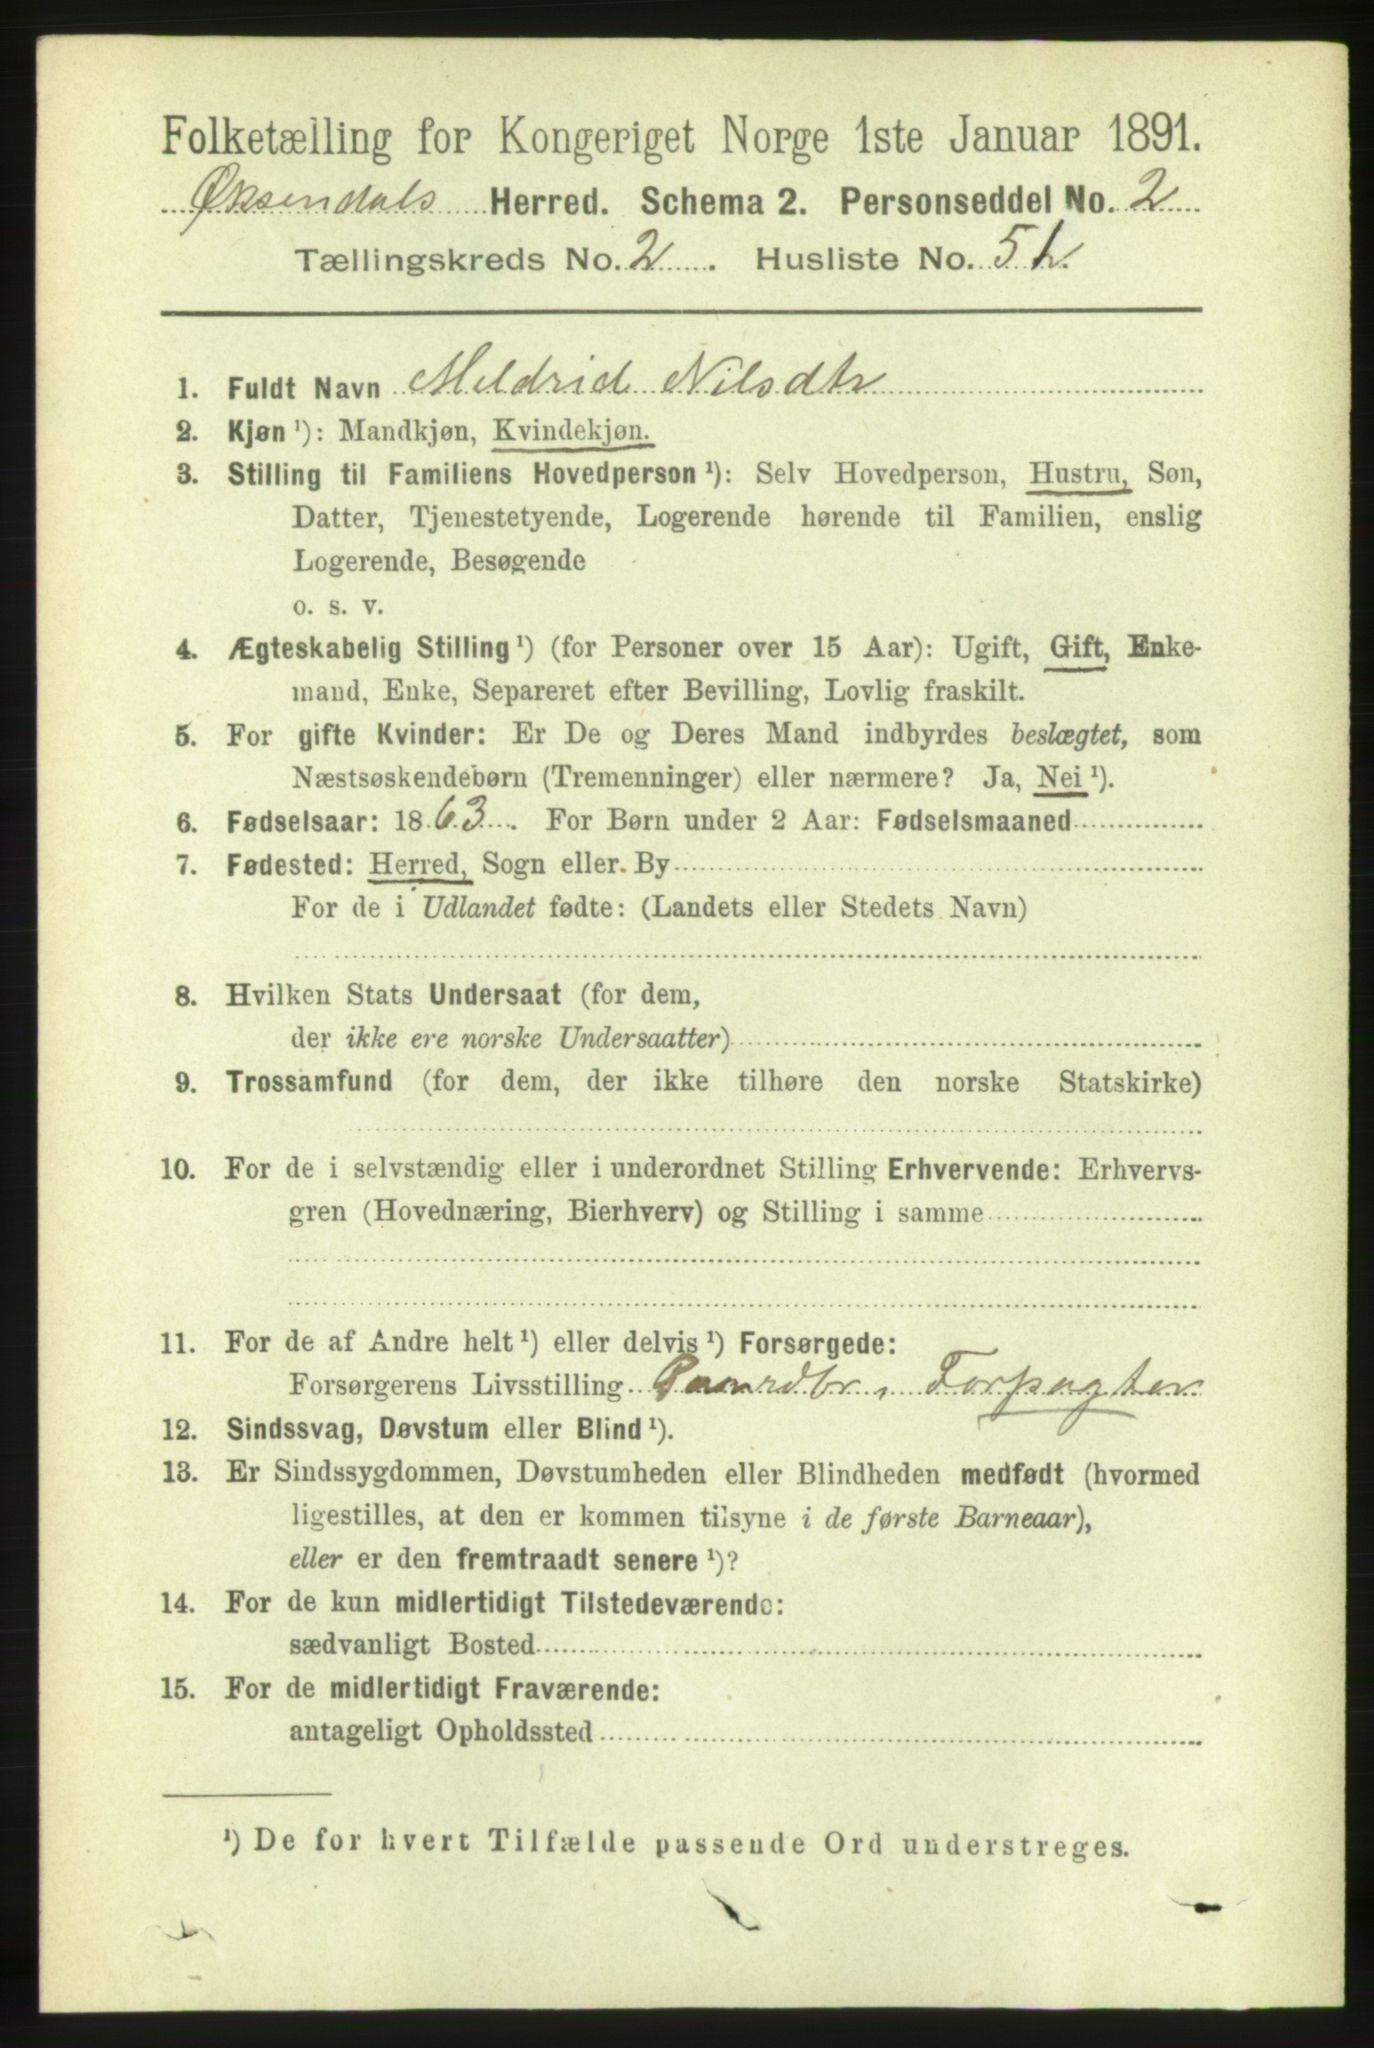 Folketælling for Kongeriget Norge 1ste Januar 1891.
Øksendals Herred. Schema 2. Personseddel No. 2
Tællingskreds No. 2. Husliste No. 51
1. Fuldt Navn Meldrid Nilsdtr
2. Kjøn ¹): Mandkjøn, Kvindekjøn.
3. Stilling til Familiens Hovedperson ¹): Selv Hovedperson, Hustru, Søn,
Datter, Tjenestetyende, Logerende hørende til Familien, enslig
Logerende, Besøgende
o. s. v.
4. Ægteskabelig Stilling ¹) (for Personer over 15 Aar): Ugift, Gift, Enke-
mand, Enke, Separeret efter Bevilling, Lovlig fraskilt.
5. For gifte Kvinder: Er De og Deres Mand indbyrdes beslægtet, som
Næstsøskendebørn (Tremenninger) eller nærmere? Ja, Nei ¹).
6. Fødselsaar: 1863. For Børn under 2 Aar: Fødselsmaaned
7. Fødested: Herred, Sogn eller By
For de i Udlandet fødte: (Landets eller Stedets Navn)
8. Hvilken Stats Undersaat (for dem,
der ikke ere norske Undersaatter)
9. Trossamfund (for dem, der ikke tilhøre den norske Statskirke)
10. For de i selvstændig eller i underordnet Stilling Erhvervende: Erhvervs-
gren (Hovednæring, Bierhverv) og Stilling i samme
11. For de af Andre helt ¹) eller delvis ¹) Forsørgede:
Forsørgerens Livsstilling Gaardbr, Forpagter
12. Sindssvag, Døvstum eller Blind ¹).
13. Er Sindssygdommen, Døvstumheden eller Blindheden medfødt (hvormed
ligestilles, at den er kommen tilsyne i de første Barneaar),
eller er den fremtraadt senere ¹)?
14. For de kun midlertidigt Tilstedeværende:
sædvanligt Bosted
15. For de midlertidigt Fraværende:
antageligt Opholdssted
¹) De for hvert Tilfælde passende Ord understreges.